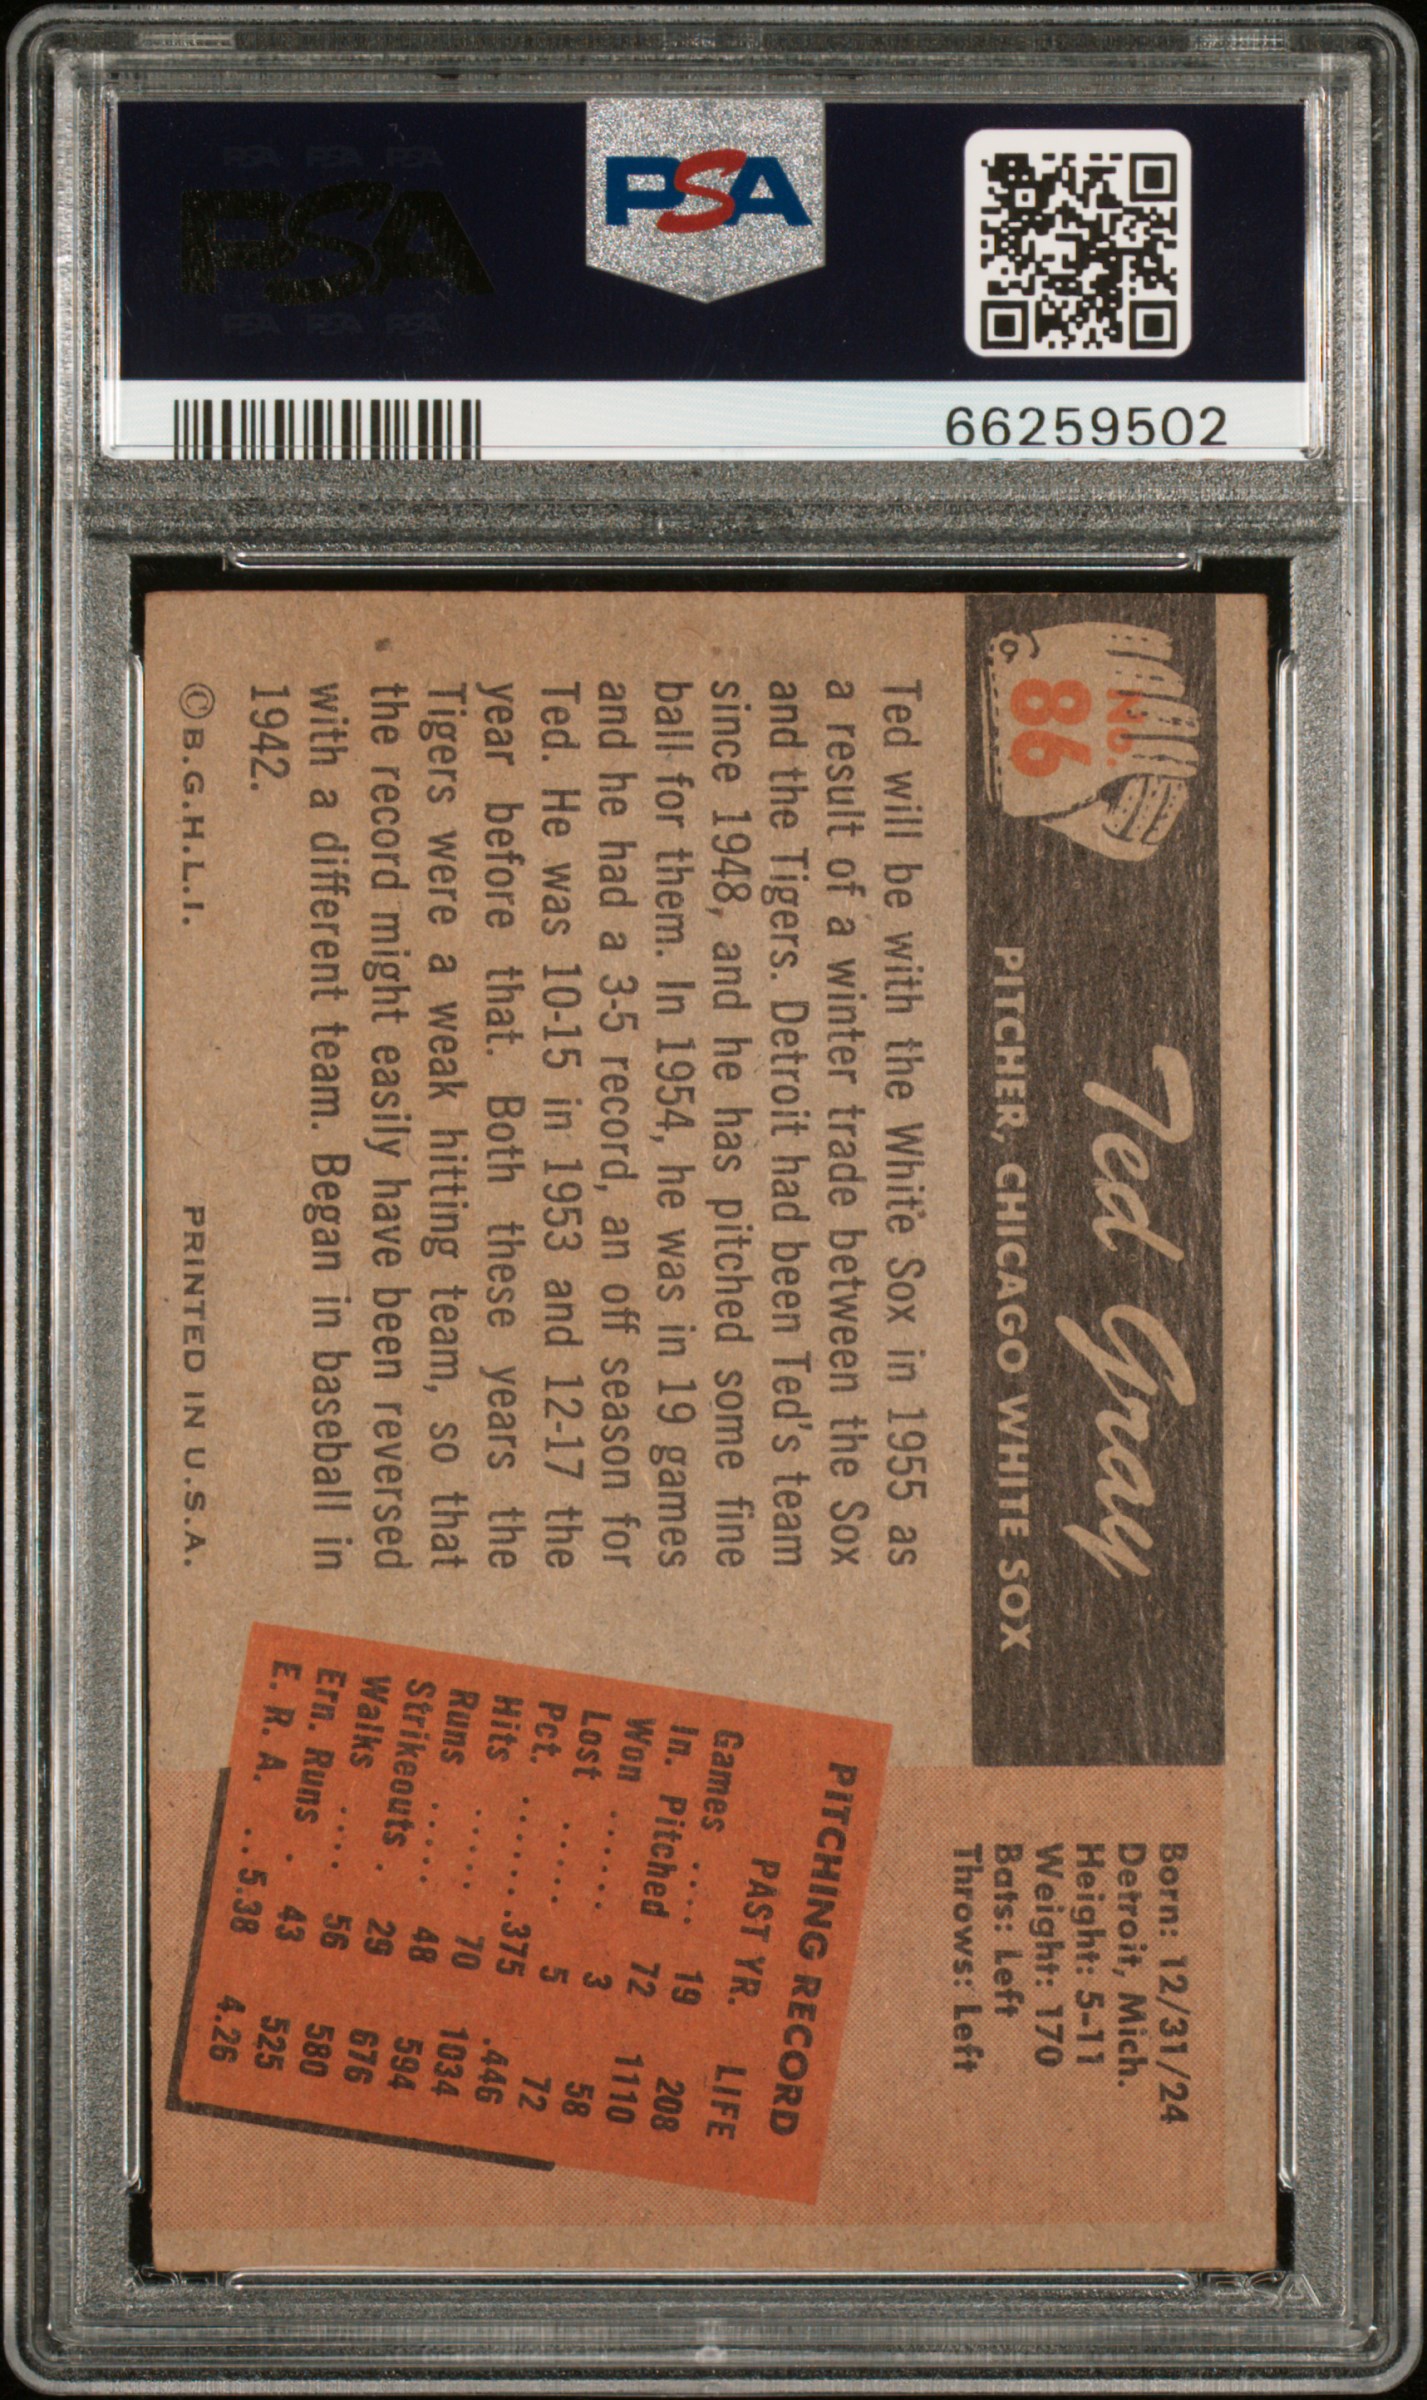 PSA PSA PSA
PSA
PSA PSA PSA
PSA
66259502
No.
86
Ted Gray
PITCHER, CHICAGO WHITE SOX
Born: 12/31/24
Detroit, Mich.
Height: 5-11
Weight: 170
Bats: Left
Throws: Left
Ted will be with the White Sox in 1955 as
a result of a winter trade between the Sox
and the Tigers. Detroit had been Ted's team
since 1948, and he has pitched some fine
ball for them. In 1954, he was in 19 games
and he had a 3-5 record, an off season for
Ted. He was 10-15 in 1953 and 12-17 the
year before that. Both these years the
Tigers were a weak hitting team, so that
the record might easily have been reversed
with a different team. Began in baseball in
1942.
© B.G.H.L.I. PRINTED IN U.S.A.
PITCHING RECORD
PAST YR. LIFE
Games .... 19 208
In. Pitched 72 1110
Won ...... 3 58
Lost ..... 5 72
Pct. ...... .375 .446
Hits ..... 70 1034
Runs ..... 48 594
Strikeouts . 29 676
Walks .... 56 580
Ern. Runs . 43 525
E. R. A. .. 5.38 4.26
PSA